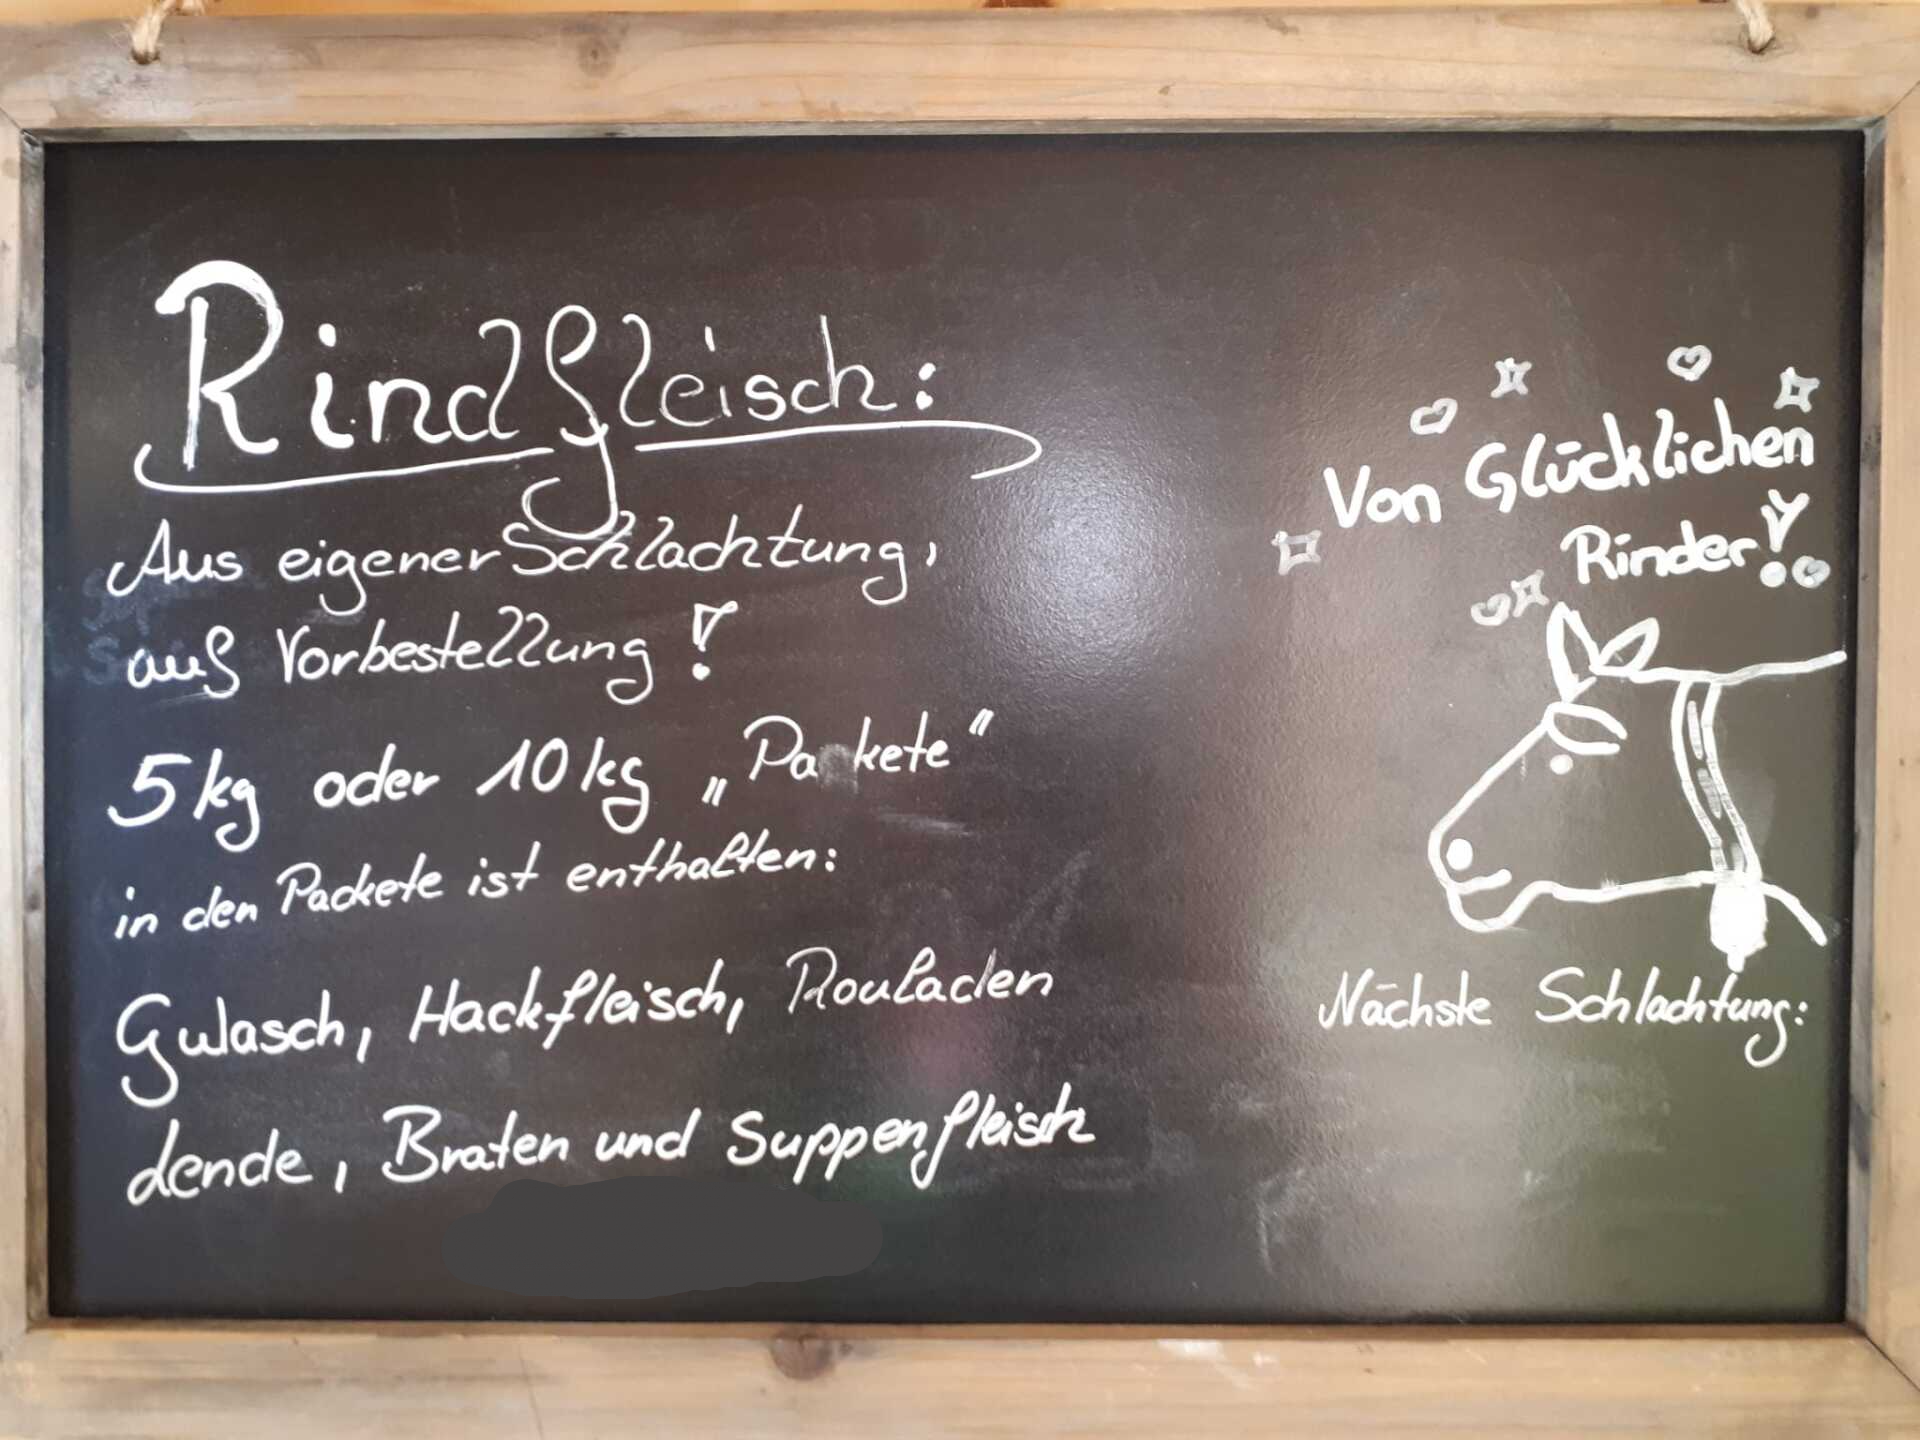 Rindfleisch:
Aus eigener Schlachtung,
auf Vorbestellung!
5kg oder 10kg „Pa kete“
in den Packete ist enthalten:
Gulasch, Hackfleisch, Rouladen
Lende, Braten und Suppenfleisch
Von Glücklichen
Rinder!
Nächste Schlachtung: